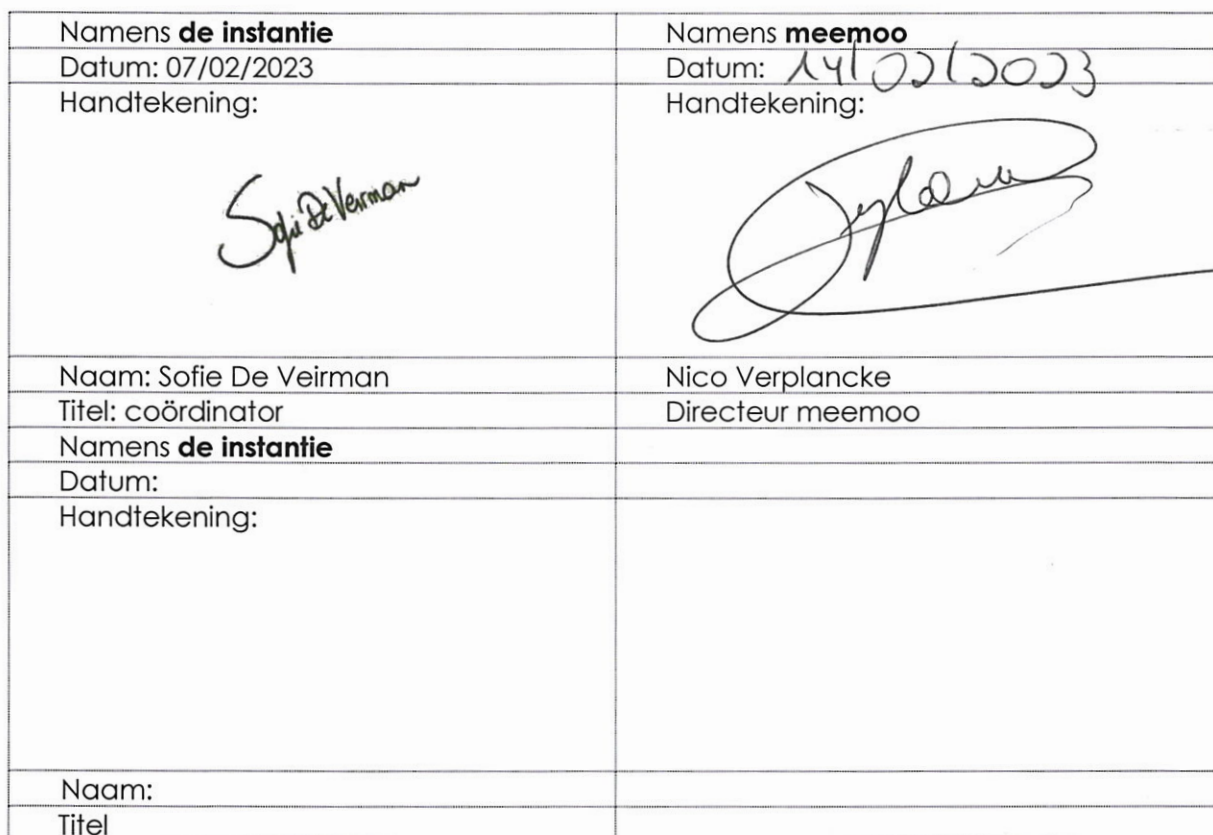 Namens de instantie
Namens meemoo
Datum: 07/02/2023
Datum: 14/02/2023
Handtekening:
Handtekening:
Sofie De Veirman
Naam: Sofie De Veirman
Nico Verplancke
Titel: coördinator
Directeur meemoo
Namens de instantie
Datum:
Handtekening:
Naam:
Titel